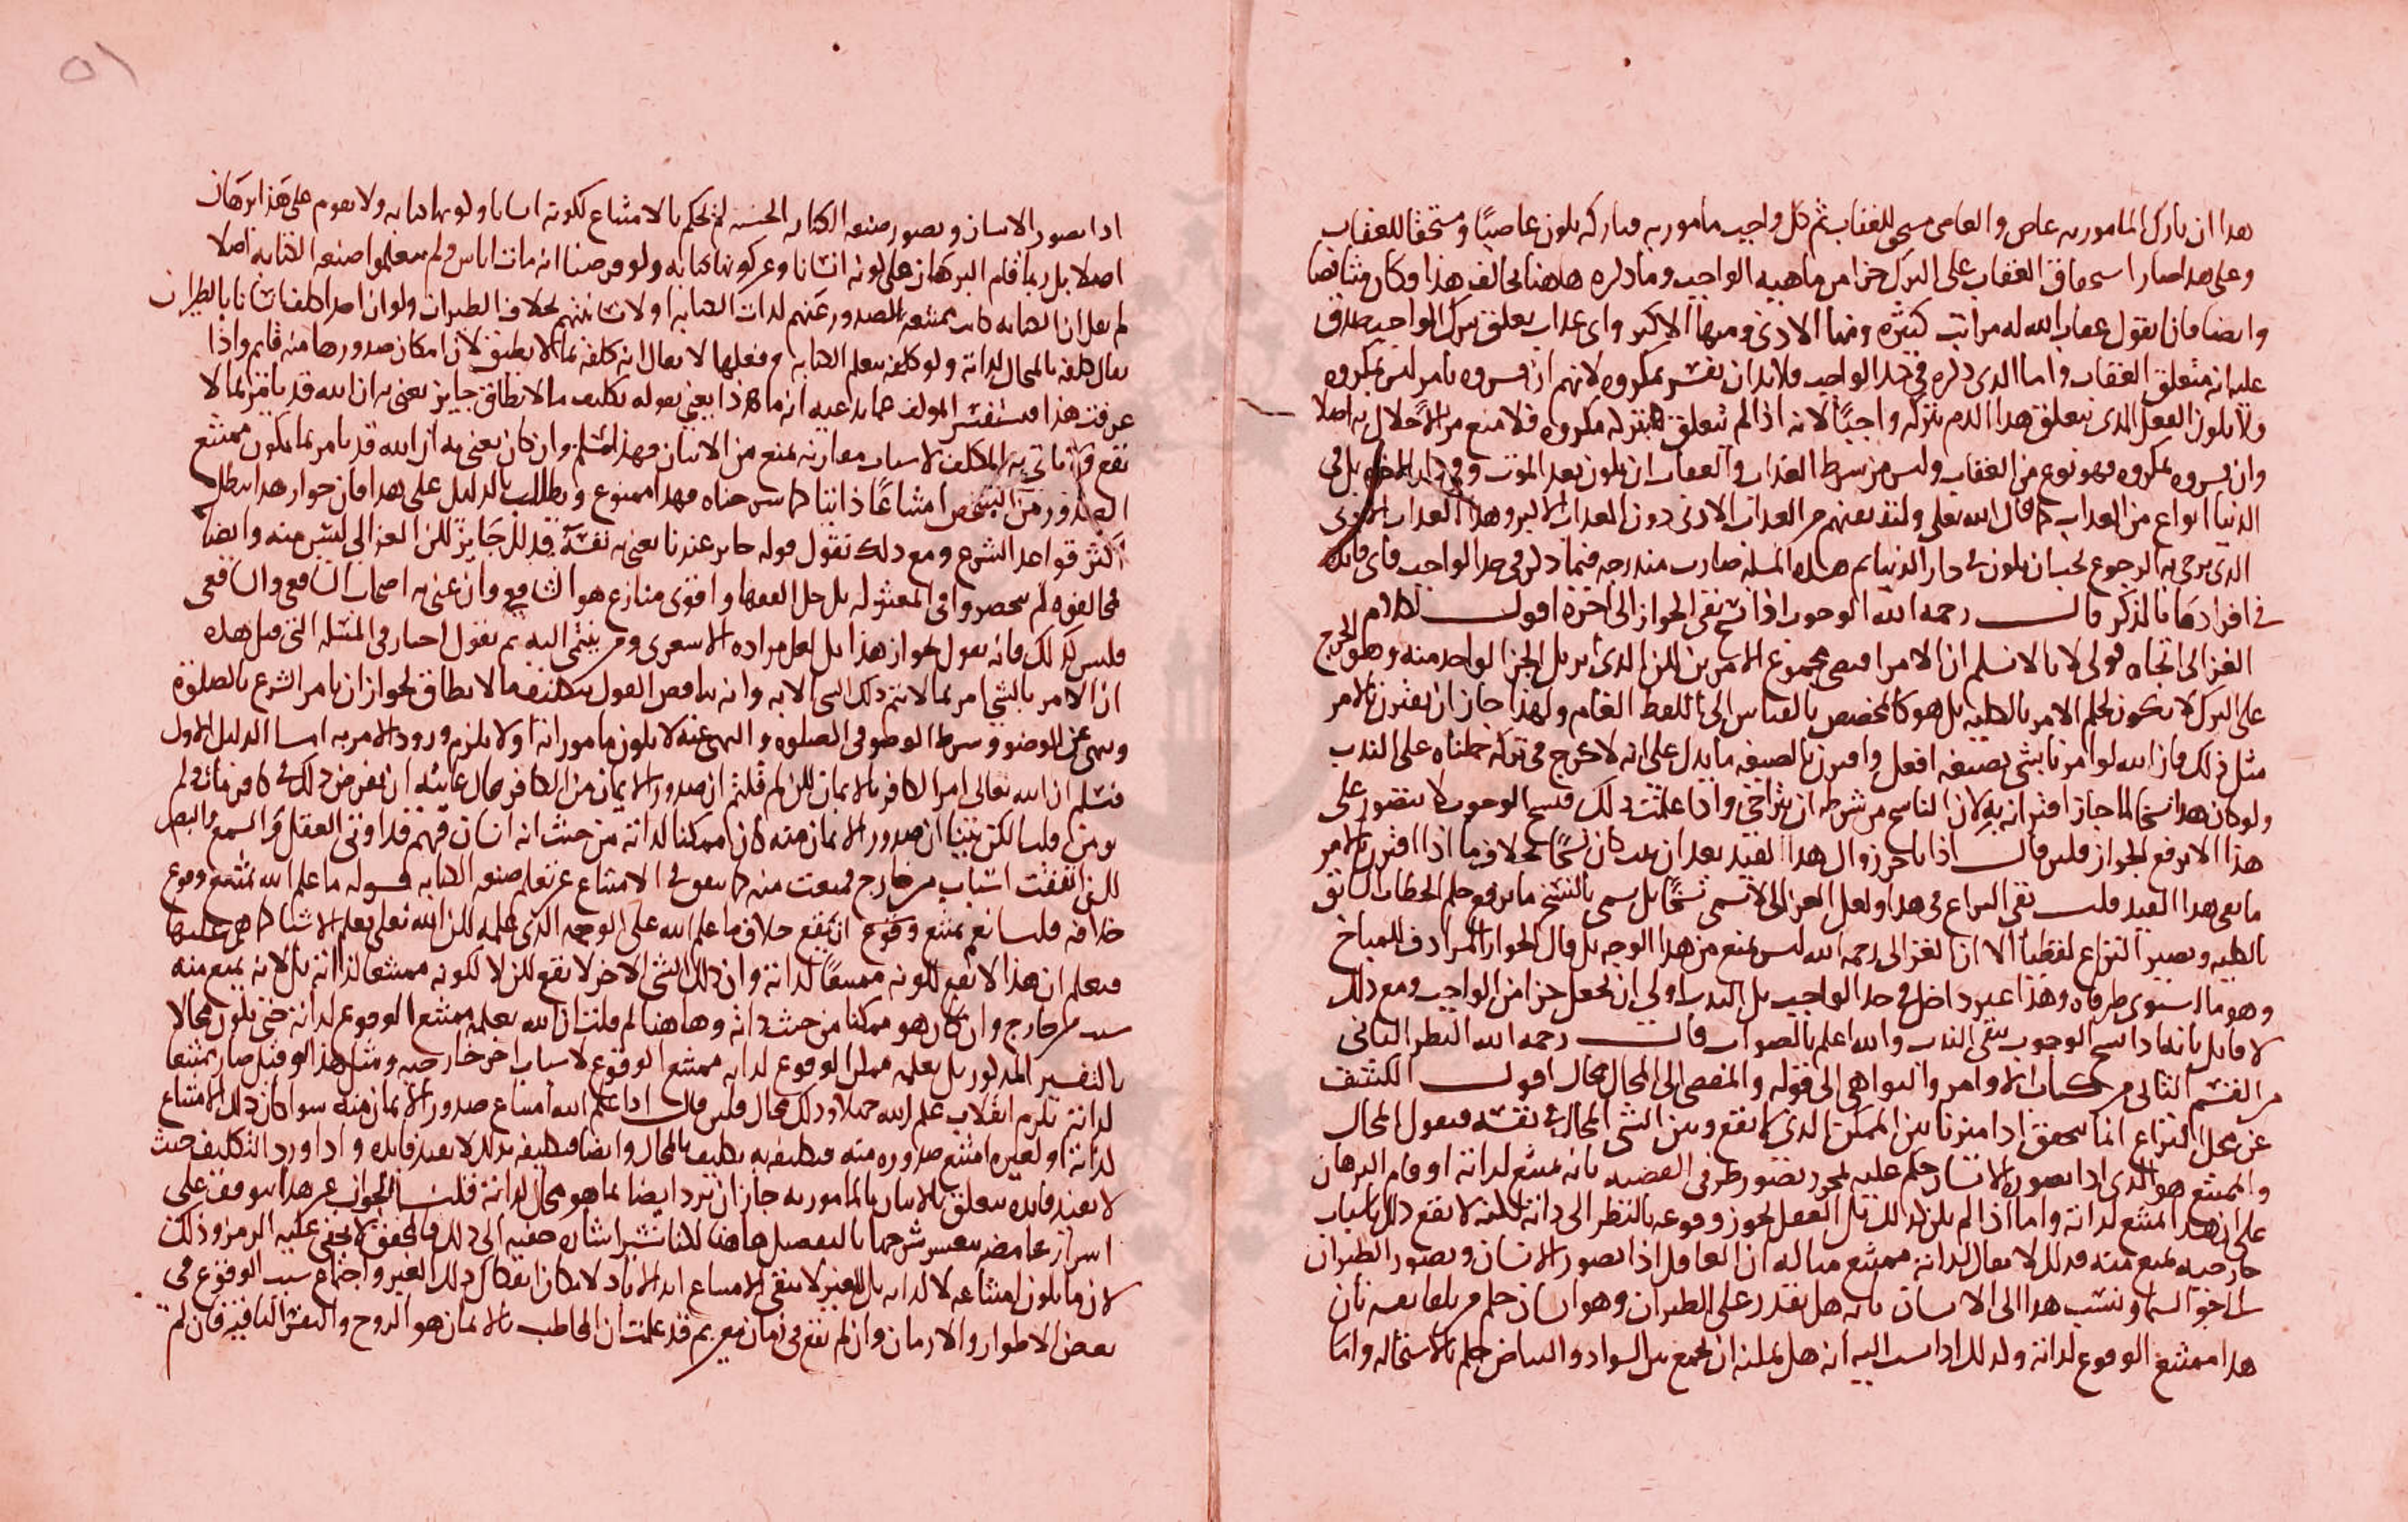 هذا ان تارك المامور به عاص والعاصي مستحق للعقاب ثم كل واجب مامور به فتاركه يكون عاصيًا ومستحقا للعقاب
وعلى هذا صار استحقاق العقاب على الترك جزا من ماهية الواجب وما ذكره هاهنا يخالف هذا وكان متناقضا
وايضا فانا نقول عقاب الله له مراتب كثيرة ومنها الادنى ومنها الاكبر واى عذاب يعلق بترك الواجب صدق
عليه انه متعلق العقاب واما الذى ذكره فى حد الواجب فلا بد ان يفسر بمكروه لانهم ان فسروه بامر ليس بمكروه
فلا يكون الفعل الذى يتعلق هذا الذم بتركه واجبًا لانه اذا لم يتعلق بتركه مكروه فلا منع من الاخلال به اصلا
وان فسروه بمكروه فهو نوع من العقاب وليس من شرط العذاب والعقاب ان يكون بعد الموت وفى دار الاخرة بل فى
الدنيا انواع من العذاب كما قال الله تعلى ولنذيقنهم من العذاب الادنى دون العذاب الاكبر وهذا العذاب الادنى
الذى يرجى به الرجوع يجب ان يكون فى دار الدنيا ثم هذه المسئلة صارت مندرجة فيما ذكر فى حد الواجب فاى فايدة
فى افرادها بالذكر قال رحمه الله الوجوب اذا نسخ بقى الجواز الى اخره اقول كلام
الغزالى اتجاه قولى لا بالا نسلم ان الامر اقتضى مجموع الامرين لكن الذى يزيل الجز الواحد منه وهو الحرج
على الترك لا يكون لحكم الامر بالكلية بل هو كالمخصص بالقياس الى اللفظ العام ولهذا جاز ان يقترن بالامر
مثل ذلك فان الله لو امرنا بشى بصيغة افعل واقترن بالصيغة ما يدل على انه لا حرج فى تركه حملناه على الندب
ولو كان هذا نسخا لما جاز اقترانه به لان الناسخ من شرطه ان يتراخى واذا علمت ذلك فنسخ الوجوب لا يتصور على
هذا الا برفع الجواز فلين قال اذا تاخر زوال هذا القيد بعد ان ثبت كان نسخًا بخلاف ما اذا اقترن بالامر
ما نفى هذا القيد قلت بقى النزاع فى هذا ولعل الغزالى لا يسمى نسخًا بل يسمى بالنسخ ما يرفع حكم الخطاب السابق
بالكلية ويصير النزاع لفظيا الا ان الغزالى رحمه الله ليس يمنع من هذا الوجه بل قال الجواز المرادف للمباح
وهو ما استوى طرفاه وهذا غير داخل فى حد الواجب بل الندب اولى ان يجعل جزا من الواجب ومع ذلك
لا قايل بانه اذا نسخ الوجوب بقى الندب والله اعلم بالصواب قال رحمه الله النظر الثانى
من القسم الثانى من كتاب الاوامر والنواهى الى قوله والمفضى الى المحال محال اقول الكشف
عن محل النزاع انما يتحقق اذا ميزنا بين الممكن الذى لا يقع وبين الشى المحال فى نفسه فنقول المحال
والممتنع هو الذى اذا تصوره الانسان حكم عليه بمجرد تصور طرفى القضية بانه ممتنع لذاته او قام البرهان
على ان هذا ممتنع لذاته واما اذا لم يكن كذلك بل العقل يجوز وقوعه بالنظر الى ذاته لكنه لا يقع ذلك باسباب
خارجية تمنع منه فذلك لا يقال لذاته ممتنع مثاله ان العاقل اذا تصور الانسان وتصور الطيران
الى نحو السماء ونسب هذا الى الانسان بانه هل يقدر على الطيران وهو انسان حكم من تلقا نفسه بان
هذا ممتنع الوقوع لذاته وكذلك اذا نسب اليه انه هل يمكنه ان يجمع بين السواد والبياض حكم بالاستحالة واما
اذا تصور الانسان وتصور صنعة الكتابة الحسنة لم يحكم بالامتناع لكونه انسانا ولكونها كتابة ولا يقوم على هذا برهان
اصلا بل ربما قام البرهان على كونه انسانا وعن كونها كتابة ولو فرضنا انه مات اناس ولم يتعلموا صنعة الكتابة اصلا
لم يقل ان الكتابة كانت ممتنعة الصدور عنهم لذات الكتابة او لانسانيتهم بخلاف الطيران ولو ان احدا كلف انسانا بالطيران
يقال كلفه بالمحال لذاته ولو كلفه بتعلم الكتابة وفعلها لا يقال انه كلفه بما لا يطيق لان امكان صدورها منه قايم واذا
عرفت هذا فيستفسر المؤلف عما يدعيه انه ماذا يعنى بقوله تكليف ما لا يطاق جايز يعنى به ان الله قد يامر بما لا
يقع ولا ياتى به المكلف لاسباب مقارنة تمنع من الاتيان فهذا مسلم وان كان يعنى به ان الله قد يامر بما يكون ممتنع
الصدور من الشخص امتناعًا ذاتيا كما شرحناه فهذا ممنوع ونطالب بالدليل على هذا فان جواز هذا يبطل
اكثر قواعد الشرع ومع ذلك نقول قوله جايز عندنا يعنى به نفسه قد لل جايز لكن الغزالى ليس منه وايضا
مخالفوه لم ينحصروا فى المعتزلة بل جل الفقها واقوى منازع هو الشافعى وان عنى به اصحاب الشافعى والشافعى
فليس كذلك فانه يقول بجواز هذا بل لعل مراده الاشعرى ومن ينتمى اليه ثم نقول اختار فى المسئلة التى قبل هذه
ان الامر بالشى امر بما لا يتم ذلك الشى الا به وانه يناقض القول بتكليف ما لا يطاق لجواز ان يامر الشرع بالصلوة
وينهى عن الوضوء وشرط الوضو فى الصلوة والنهى عنه لا يكون مامورا به او لا يلزم ورود الامر به اما الدليل الاول
فنسلم ان الله تعالى امر الكافر بالايمان لكن لم قلتم ان صدور الايمان من الكافر محال غايته ان نفرض ذلك فى كافر مات ولم
يومن قلنا لكن بينا ان صدور الايمان منه كان ممكنا لذاته من حيث انه انسان فهم قد اوتى العقل والسمع والبصر
لكن اتفقت اسباب من خارج فمنعت منه كما يتفق فى الامتناع عن تعلم صنعة الكتابة قوله ما علم الله يمتنع وقوع
خلافه قلنا نعم يمتنع وقوع ان يقع خلاف ما علم الله على الوجه الذى علمه لكن الله تعلى يعلم الاشيا كما هى عليها
فيعلم ان هذا لا يقع لكونه ممتنعًا لذاته وان ذلك الشى الاخر لا يقع لكن لا لكونه ممتنعا لذاته بل لانه يمنع منه
سبب من خارج وان كان هو ممكنا من حيث ذاته وهاهنا لم قلت ان الله يعلمه ممتنع الوقوع لذاته حتى يكون محالا
بالتفسير المذكور بل يعلمه ممكن الوقوع لذاته ممتنع الوقوع لاسباب اخر خارجية ومثل هذا لو قيل صار ممتنعا
لذاته يلزم انقلاب علم الله جهلا وذلك محال فلين قال اذا علم الله امتناع صدور الايمان منه سوا كان ذلك الامتناع
لذاته او لغيره امتنع صدوره منه فتكليفه به تكليف بالمحال وايضا فتكليفه بذلك لا يفيد فايدة واذا ورد التكليف حيث
لا يفيد فايدة تتعلق بالاتيان بالمامور به جاز ان يرد ايضا بما هو محال لذاته قلت الجواب عن هذا يتوقف على
اسرار غامضة يتعسر شرحها بالتفصيل هاهنا لكنا نشير اشارة خفية الى ذلك فالمحقق لا يخفى عليه الرمز وذلك
لان ما يكون امتناعه لا لذاته بل للغير لا يبقى الامتناع ابد الاباد لامكان انفكاك ذلك الغير واجتماع سبب الوقوع فى
بعض الاطوار والازمان وان لم يقع فى زمان معين ثم قد علمت ان المخاطب بالايمان هو الروح والنفس الباقية فان لم